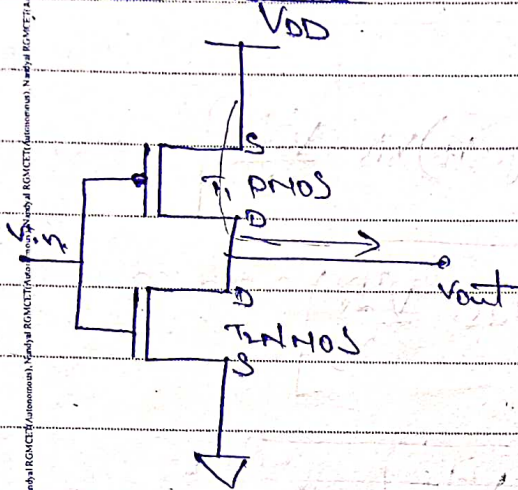 VDD
S
T1 PMOS
D
Vin
Vout
D
T2 NMOS
S
Nandyal RGMCET(Autonomous), Nandyal RGMCET(Autonomous), Nandyal RGMCET(Autonomous), Nandyal RGMCET(A